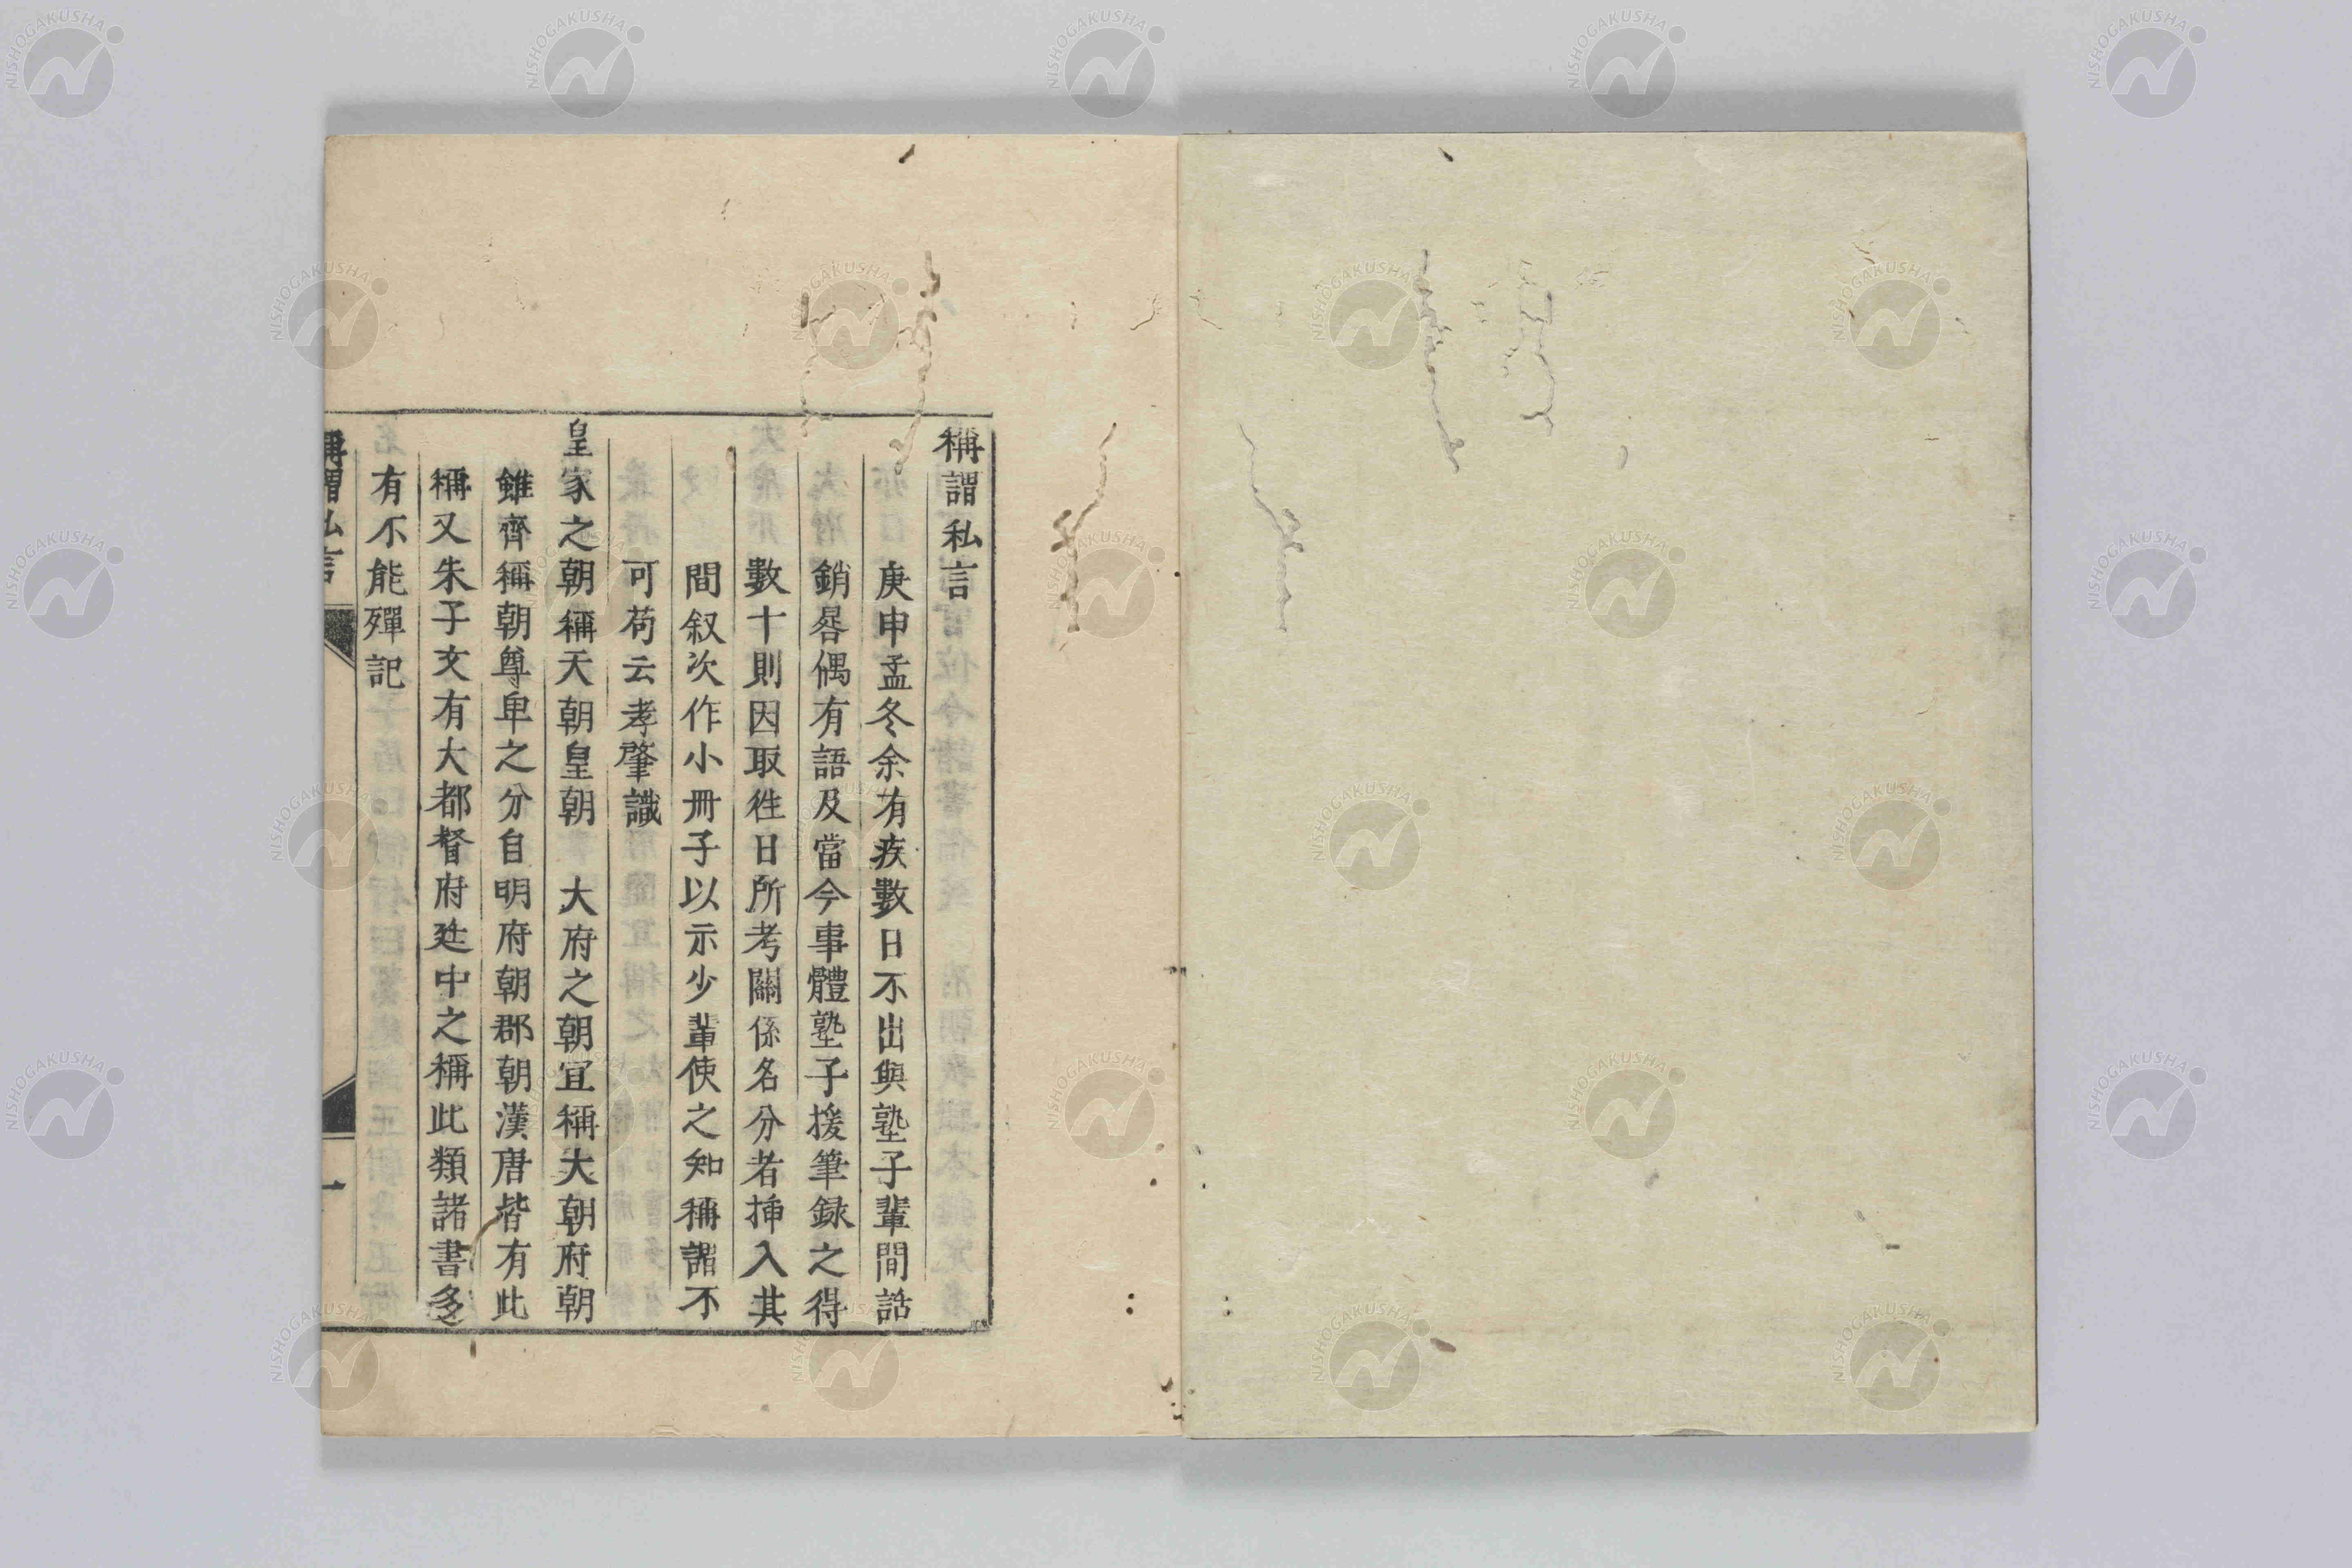 稱謂私言
庚申孟冬余有疾數日不出與塾子輩間話
銷晷偶有語及當今事體塾子援筆録之得
數十則因取徃日所考關係名分者挿入其
間叙次作小冊子以示少輩使之知稱謂不
可苟云孝肇識
皇家之朝稱天朝皇朝　大府之朝宜稱大朝府朝
雖齊稱朝尊卑之分自明府朝郡朝漢唐皆有此
稱又朱子文有大都督府廷中之稱此類諸書多
有不能殫記
稱謂私言
一
NISHOGAKUSHA